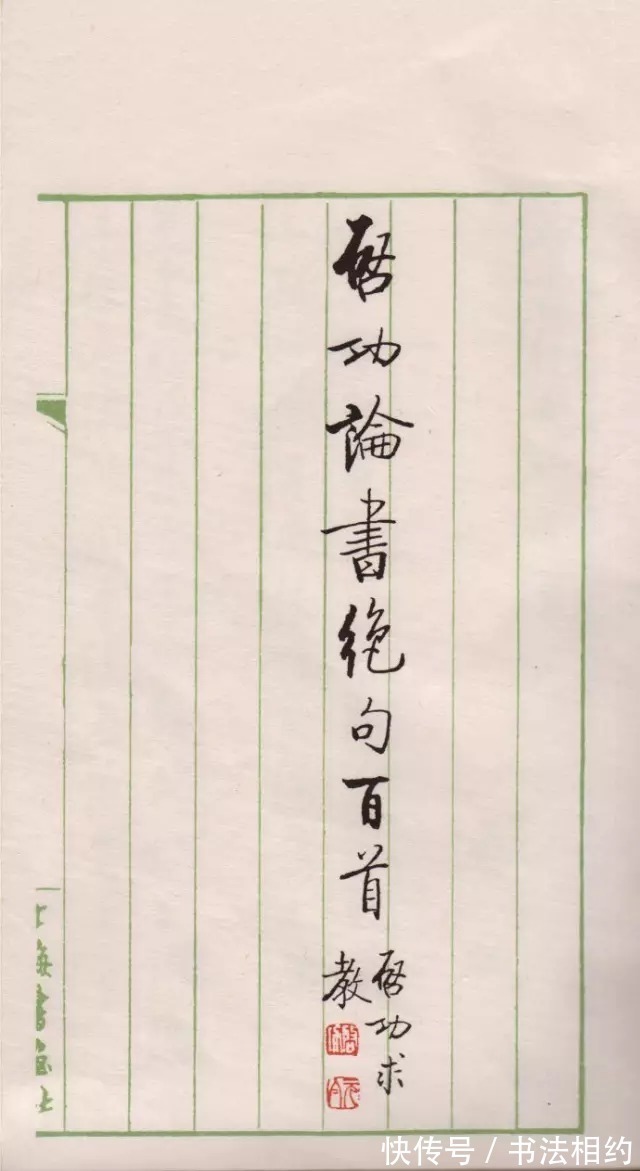 启功論書絕句百首
启功求
教
上海書画社
快传号 / 书法相约